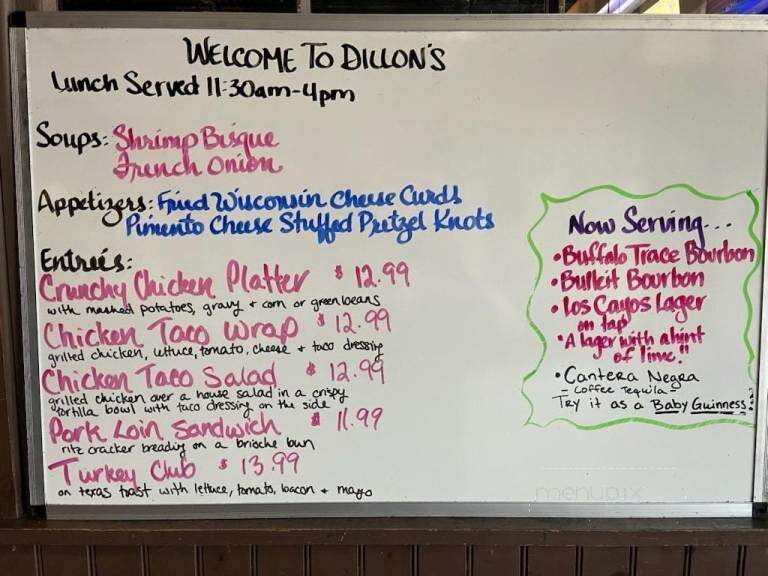 WELCOME TO DILLON'S
Lunch Served 11:30am-4pm
Soups: Shrimp Bisque
French Onion
Appetizers: Fried Wisconsin Cheese Curds
Pimento Cheese Stuffed Pretzel Knots
Entrées:
Crunchy Chicken Platter $12.99
with mashed potatoes, gravy + corn or green beans
Chicken Taco Wrap $12.99
grilled chicken, lettuce, tomato, cheese + taco dressing
Chicken Taco Salad $12.99
grilled chicken over a house salad in a crispy
tortilla bowl with taco dressing on the side
Pork Loin Sandwich $11.99
ritz cracker breading on a brioche bun
Turkey Club $13.99
on texas toast with lettuce, tomato, bacon + mayo
Now Serving...
•Buffalo Trace Bourbon
•Bulleit Bourbon
•Los Cayos Lager
on tap
"A lager with a hint
of lime."
•Cantera Negra
- Coffee Tequila -
Try it as a Baby Guinness!
menupix